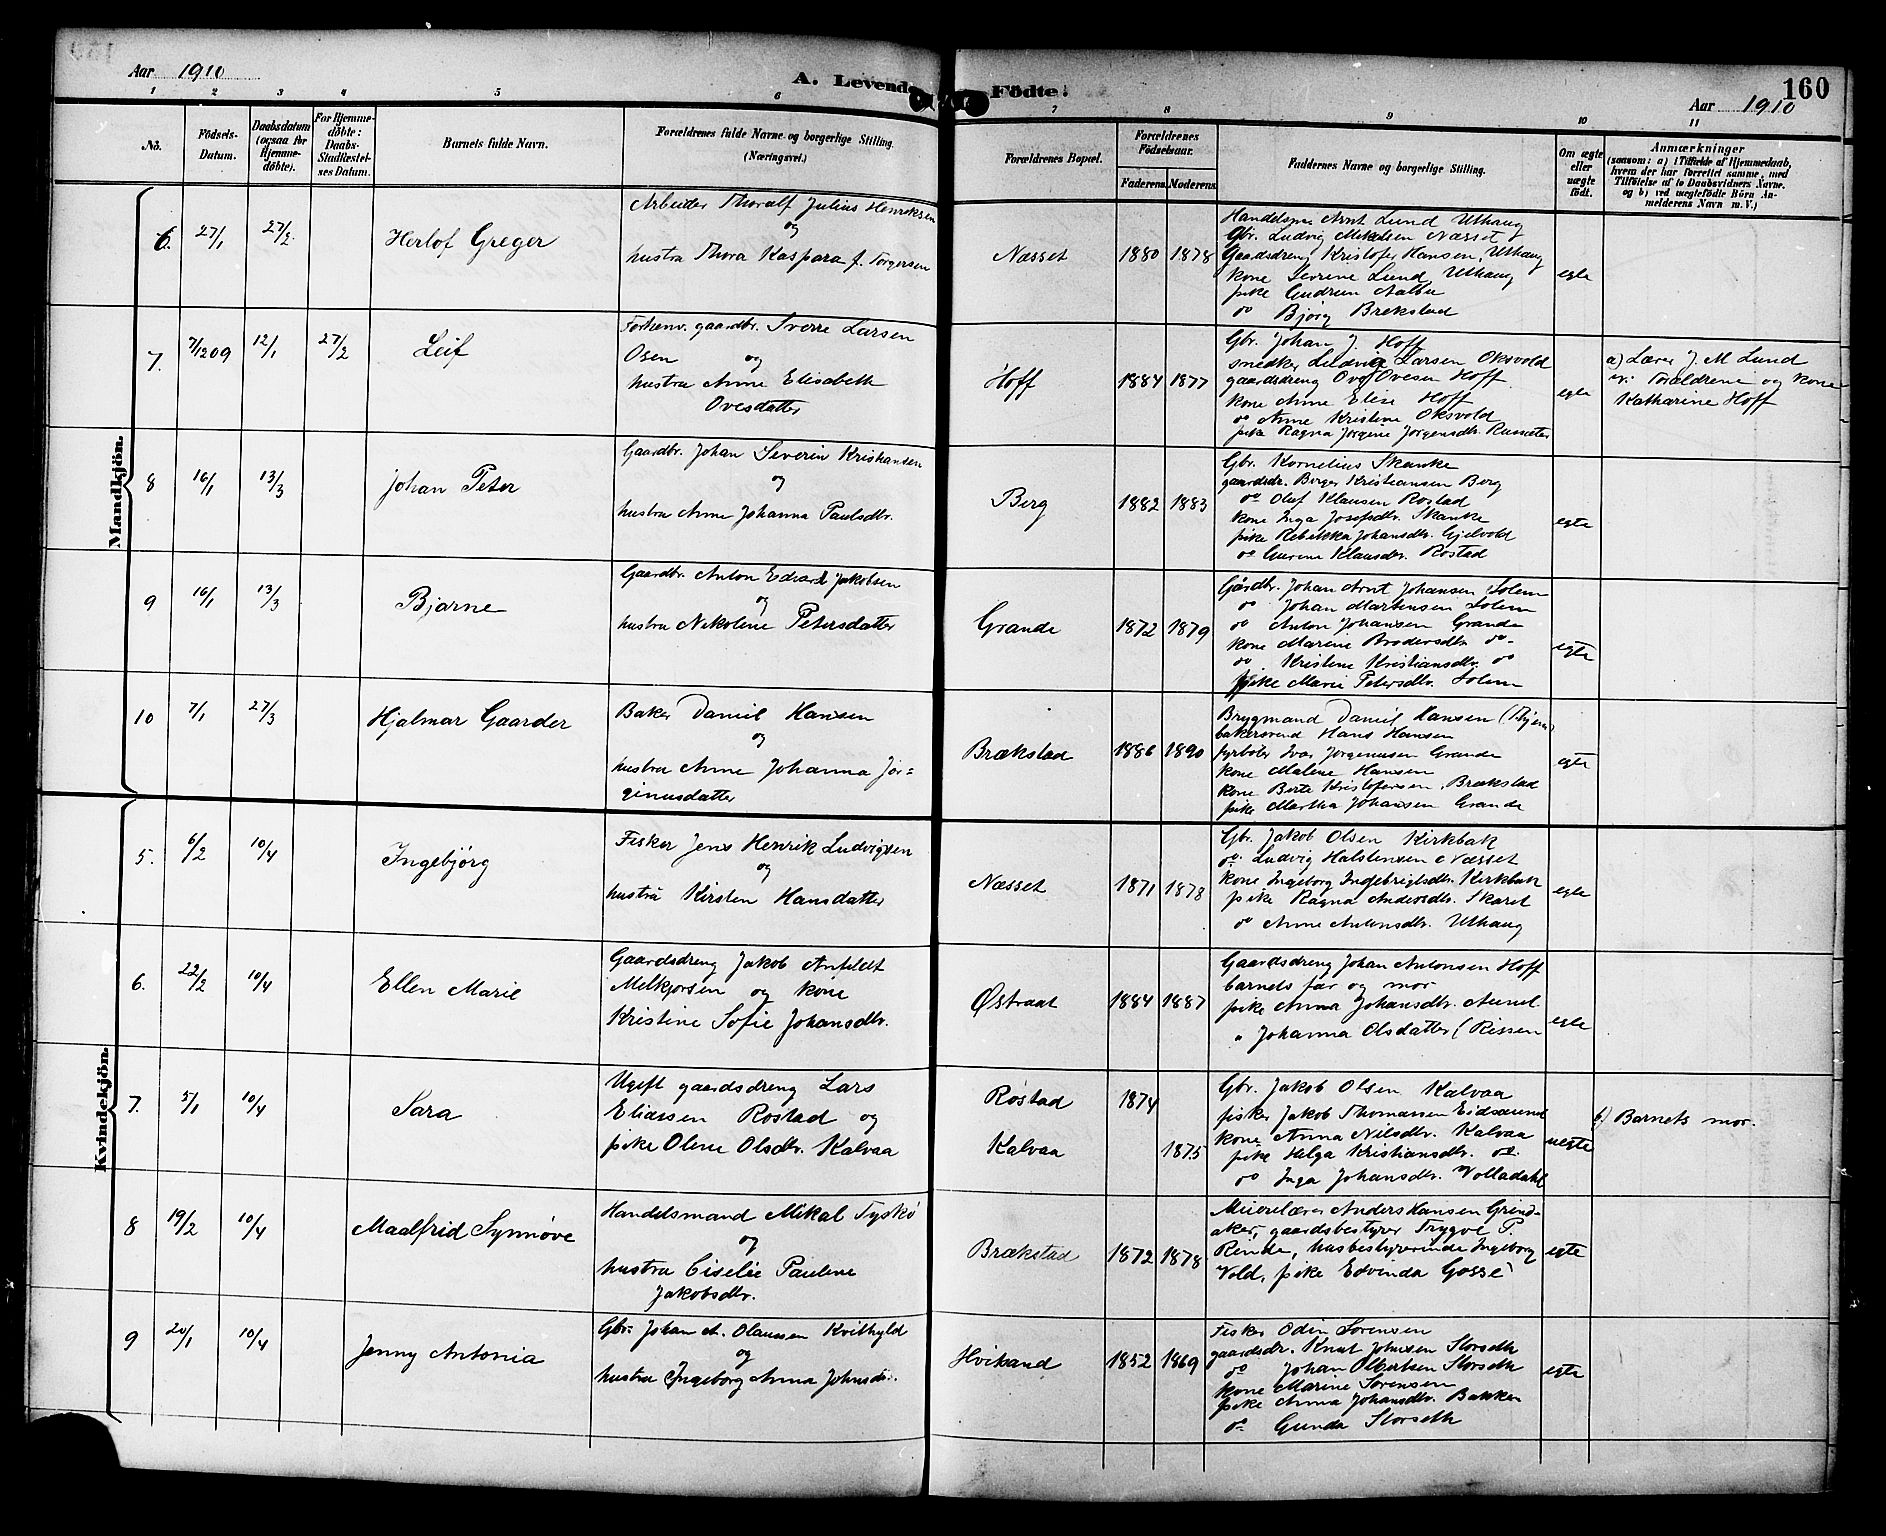 Aar 1910
A. Levende Födte.
160
Aar 1910
1 2 3 4 5 6 7 8 9 10 11
No.
Födsels-Datum.
Daabsdatum (ogsaa for Hjemme-döbte).
For Hjemme-döbte: Daabs-Stadfæstel-ses Datum.
Barnets fulde Navn.
Forældrenes fulde Navne og borgerlige Stilling.
(Næringsvei.)
Forældrenes Bopæl.
Forældrenes Födselsaar.
Faderens. Moderens.
Faddernes Navne og borgerlige Stilling.
Om ægte eller uægte födt.
Anmærkninger
(saasom: a) i Tilfælde af Hjemmedaab,
hvem der har forrettet samme, med
Tilföielse af to Daabsvidners Navne.
og b) ved uægtefödte Börn An-
melderens Navn m. V.)
Mandkjön.
6. 27/1 27/2. Herlof Greger
Arbeider Thoralf Julius Henriksen
og
hustru Thora Kaspara f. Torgersen
Næsset 1880 1878
Handelsm. Arnt Lund Uthaug
Gbr. Ludvig Mikalsen Næsset
Gaardsdreng Kristofer Hansen, Uthaug
kone Severine Lund, Uthaug
pike Gudrun Aalbu
do Bjorg Brekstad
egte
7. 7/12 09 12/1 27/2 Leif
Forhenv. gaardbr. Sverre Larsen
Osen og
hustru Anne Elisabeth
Ovesdatter
Hoff 1884 1877
Gbr. Johan J. Hoff
snedker Ludvig Larsen Oksvold
gaardsdreng Ove Ovesen Hoff
kone Anne Elise Hoff
do Anne Kristine Oksvold
pike Ragna Jørgine Jørgensdtr. Russeter
egte
a) Lærer J. M. Lund
v: Forældrene og kone
Katharine Hoff
8 16/1 13/3 Johan Peter
Gaardbr. Johan Severin Kristiansen
og
hustru Anne Johanna Paulsdtr.
Berg 1882 1883
Gbr. Kornelius Skanke
gaardsdr. Berger Kristiansen Berg
do Oluf Klausen Rostad
kone Inga Josefsdtr. Skanke
pike Rebekka Johansdtr. Gjelvold
do Gurine Klausdtr. Rostad
egte
9 16/1 13/3 Bjarne
Gaardbr. Anton Edvard Jakobsen
og
hustru Nikoline Petersdatter
Grande 1872 1879
Gårdbr. Johan Arnt Johansen Solem
do Johan Martensen Solem
do Anton Johansen Grande
kone Marine Brodersdtr. do
do Kristine Kristiansdtr. do
pike Marie Petersdtr. Solem
egte
10 7/1 27/3 Hjalmar Gaarder
Baker Daniel Hansen
og
hustru Anne Johanna Jør=
ginusdatter
Brækstad 1886 1890
Brygmand Daniel Hansen (Thjem)
bakersvend Hans Hansen
fyrbøter Ivar Jørgenusen Grande
kone Malene Hansen
kone Berte Kristofersen, Brækstad
pike Martha Johansen Grande
egte
Kvindekjön.
5. 6/2 10/4 Ingebjørg
Fisker Jens Henrik Ludvigsen
og
hustru Kirsten Hansdatter
Næsset 1871 1878
Gbr. Jakob Olsen Kirkbak
do. Ludvig Halstensen Næsset
kone Ingeborg Ingebrigtsdtr. Kirkbak
pike Ragna Andersdtr. Skaret
do Anne Antonsdtr. Uthaug
egte
6. 22/2 10/4 Ellen Marie
Gaardsdreng Jakob Anfeldt
Melkjorsen og kone
Kristine Sofie Johansdtr.
Østraat 1884 1887
Gaardsdreng Johan Antonsen Hoff
barnets far og mor
pike Anna Johansdtr. Aunel
" Johanna Olsdatter (Rissen
egte
7. 5/1 10/4 Sara
Ugift gaardsdreng Lars
Eliassen Rostad og
pike Oline Olsdtr. Kalvaa
Rostad 1874
Kalvaa 1875
Gbr. Jakob Olsen Kalvaa
fisker Jakob Thomassen Eidsaunet
kone Anna Nilsdtr. Kalvaa
pike Helga Kristiansdtr. do.
do Inga Johansdtr. Volladahl
uegte
b) Barnets mor.
8 19/2 10/4 Maalfrid Synnøve
Handelsmand Mikal Tyskø
og
hustru Ciselie Pauline
Jakobsdtr.
Brækstad 1872 1878
Meierelærer Anders Hansen Grind-
aker, gaardsbestyrer Trygve P.
Rende, husbestyrerinde Ingeborg
Vold, pike Edvinda Gosse
egte
9 20/1 10/4 Jenny Antonia
Gbr. Johan A. Olaussen Kvithyld
og
hustru Ingeborg Anna Johnsdr.
Hvikand 1852 1869
Fisker Odin Sorensen
gaardsdr. Knut Johnsen Storseth
do Johan Olbertsen Storseth
kone Marine Sorensen
pike Anna Johansdtr. Bakken
do Gunda Storseth
egte